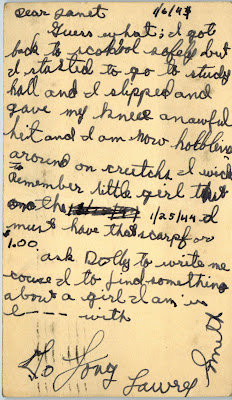 Dear Janet 1/6/43
Guess what; I got
back to school safely but
I started to go to study
hall and I slipped and
gave my knee an awful
hit and I am now hobbleing
around on crutchs I wish
to
Remember little girl that
on the 1/25/44 I
must have that scarf or
1.00.
ask Dolly to write me
couse I to find something
about a girl I am in
L---- with
So Long
Lawre
Smith